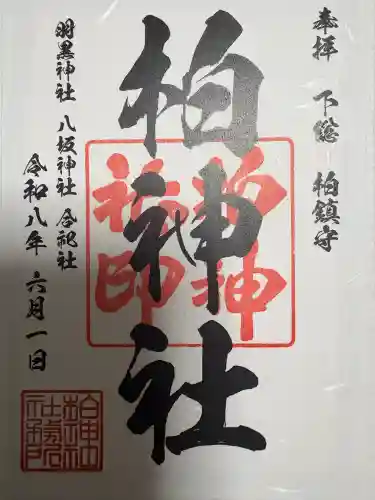 奉拝 下総 柏鎮守
柏神社
羽黒神社 八坂神社 合祀社
令和八年 六月一日
柏神社印
柏神社社務所